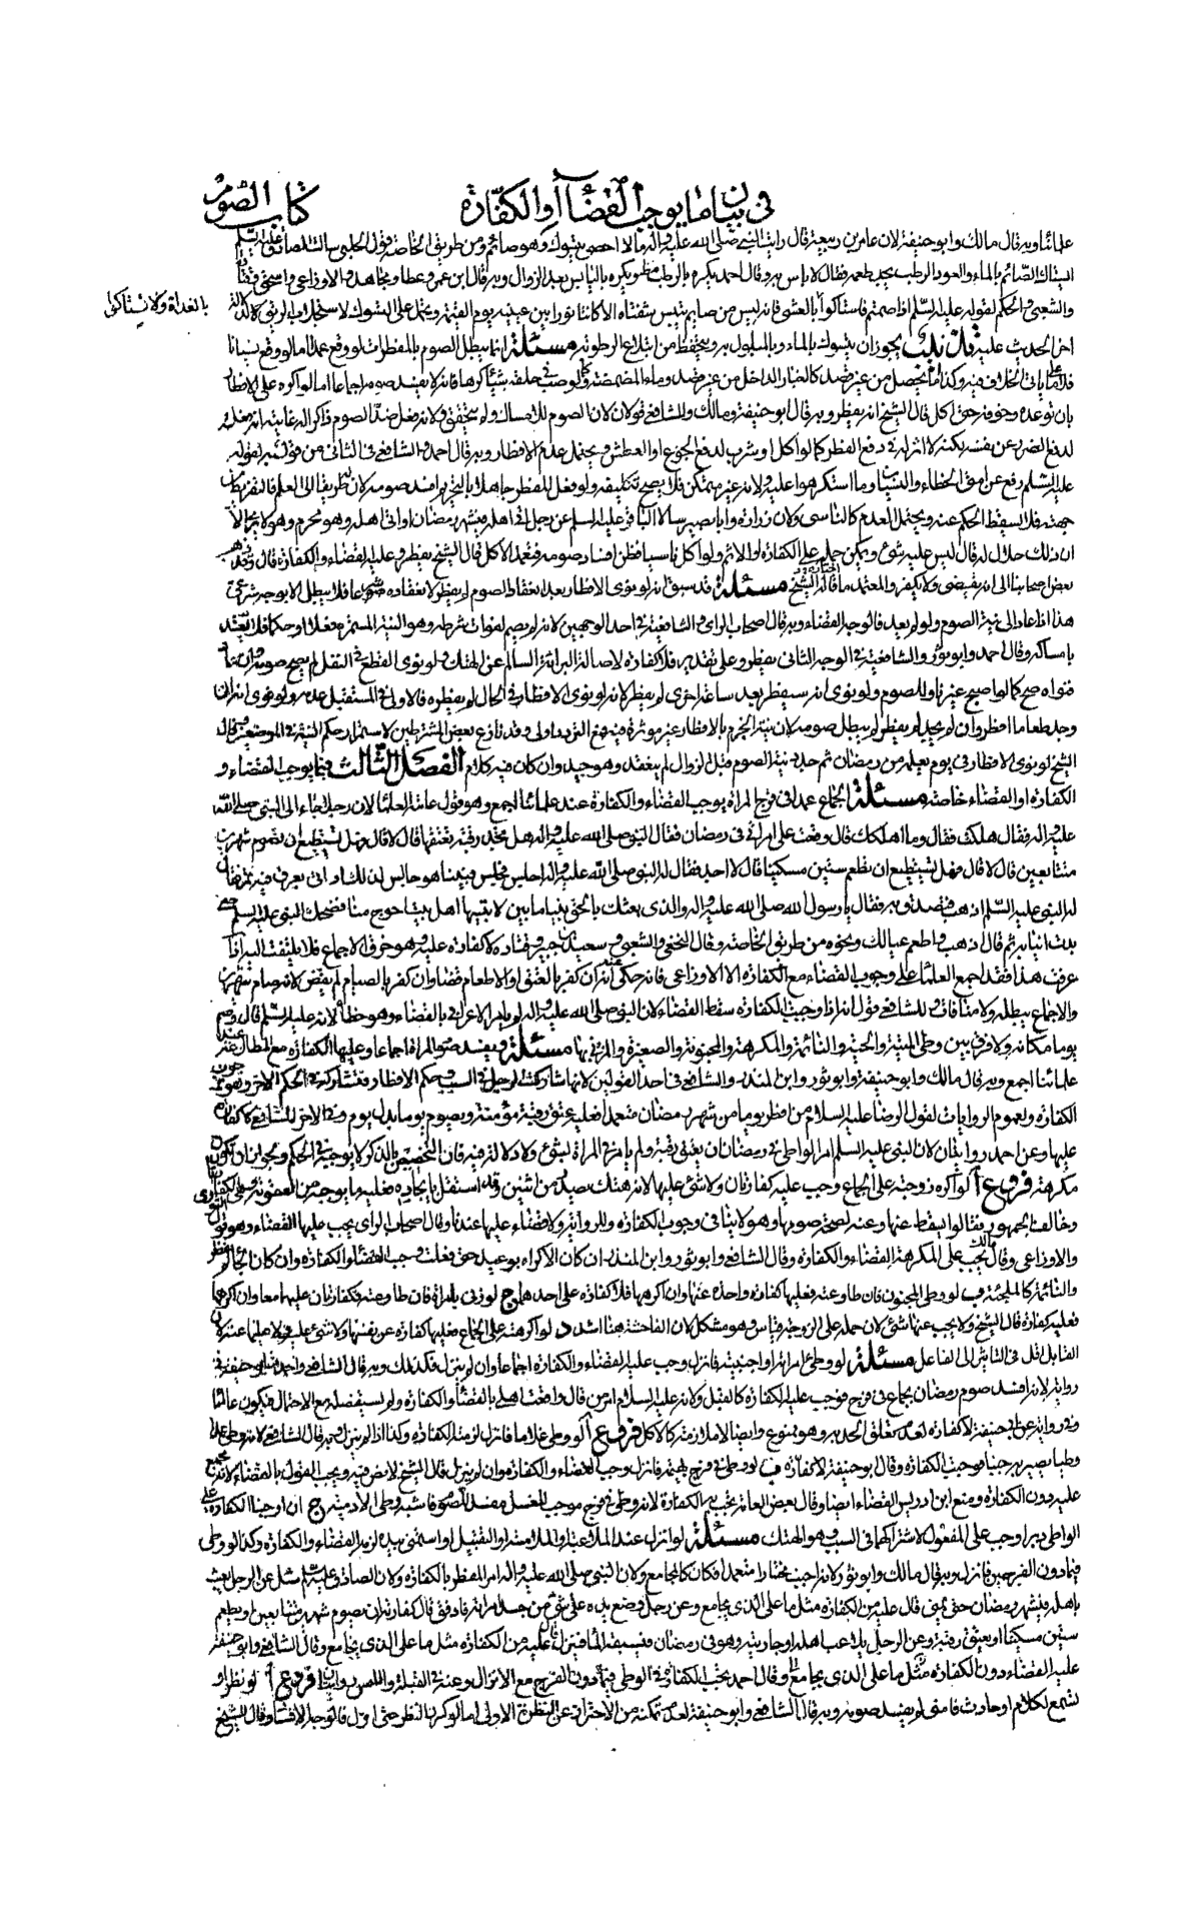 في بيان ما يوجب القضاء أو الكفارة
كتاب الصوم
علمائنا وبه قال مالك وابو حنيفة لان عامر بن ربيعة قال رايت النبي صلى الله عليه واله ما لا احصى يتسوك وهو صائم ومن طريق الخاصة قول الحلبي سالت الصادق عليه السلم
ايستاك الصائم بالماء والعود الرطب يجد طعمه فقال لا باس به وقال احمد يكره بالرطب مطلقا ويكره باليابس بعد الزوال وبه قال ابن عمر وعطاء ومجاهد والاوزاعي واسحق
والشعبي والحكم لقوله عليه السلم اذا صمتم فاستاكوا بالغداة ولا تستاكوا بالعشى فانه ليس من صايم يتيبس شفتاه الا كانتا نورا بين عينيه يوم القيمة
اخر الحديث عليه يجوز ان يتسوك بالماء وبالمبلول به ويتحفظ من ابتلاع الرطوبة مسئلة انما يبطل الصوم بالمفطرات لو وقع عمدا اما لو وقع نسيانا
فلا وكذا ما يحصل من غير قصد كالغبار الداخل من غير قصد وماء المضمضة وكما لو صب في حلقه شيئا كرها فانه لا يفسد صومه اجماعا اما لو اكره على الافطار
بان توعده وخوفه حتى اكل قال الشيخ انه يفطر وبه قال ابو حنيفة ومالك والشافعي في قول لان الصوم الامساك ولم يتحقق ولانه فعل ضد الصوم ذاكرا له
لدفع الضرر عن نفسه لكنه لا اثر له في دفع الفطر كما لو اكل او شرب لدفع الجوع او العطش ويحتمل عدم الافطار وبه قال احمد والشافعي في الثاني من قوليه لقوله
عليه السلم رفع عن امتي الخطاء والنسيان وما استكرهوا عليه ولانه غير متمكن فلا يصح تكليفه ولو فعل المفطر جاهلا بالتحريم افسد صومه لان له طريقا الى العلم فالتفريط من
جهته فلا يسقط الحكم عنه ويحتمل العدم كالناسي ولان زرارة وابا بصير سالا الباقر عليه السلم عن رجل اتى اهله في شهر رمضان او اتى اهله وهو محرم وهو لا يرى الا
ان ذلك حلال له قال ليس عليه شيء ويمكن حمله على الكفارة او الاثم ولو اكل ناسيا فظن افساد صومه فتعمد الاكل قال الشيخ يفطر وعليه القضاء والكفارة قال وذهب
بعض اصحابنا الى انه يقضى ولا يكفر والمعتمد ما قاله الشيخ مسئلة قد سبق انه لو نوى الافطار بعد انعقاد الصوم لم يفطر لانعقاده شرعا فلا يبطل الا بوجه شرعي
هذا اذا عاد الى نية الصوم ولو لم يعد فالوجه القضاء وبه قال اصحاب الراي والشافعية في احد الوجهين لانه لم يصم لفوات شرطه وهو النية المستمرة فعلا او حكما فلا يعتد
بامساكه وقال احمد وابو ثور والشافعية في الوجه الثاني يفطر وعلى تقديره فلا كفارة لاصالة البراءة السالم عن الهتك ولو نوى القطع في النفل لم يصح صومه وان عاد
فنواه صح كما لو اصبح غير ناو للصوم ولو نوى انه سيفطر بعد ساعة اخرى لم يفطر لانه لو نوى الافطار في الحال لم يفطره فالاولى في المستقبل عدمه ولو نوى انه ان
وجد طعاما افطر وان لم يجد لم يفطر لم يبطل صومه لان نية الجزم بالافطار غير مؤثرة فيه فمع الترديد اولى وقد نازع بعض المشترطين لاستمرار حكم النية في الموضعين قال
الشيخ لو نوى الافطار في يوم يعلمه من رمضان ثم جدد نية الصوم قبل الزوال لم ينعقد وهو جيد وان كان فيه كلام الفصل الثالث فيما يوجب القضاء و
الكفارة او القضاء خاصة مسئلة الجماع عمدا في فرج المراة يوجب القضاء والكفارة عند علمائنا اجمع وهو قول عامة العلماء لان رجلا جاء الى النبي صلى الله
عليه واله فقال هلكت فقال وما اهلكك قال وقعت على امراتي في رمضان فقال النبي صلى الله عليه واله هل تجد رقبة تعتقها قال لا قال فهل تستطيع ان تصوم شهرين
متتابعين قال لا قال فهل تستطيع ان تطعم ستين مسكينا قال لا اجد فقال له النبي صلى الله عليه واله اجلس فجلس فبينا هو جالس كذلك اذ اتى بعرق فيه تمر فقال
له النبي عليه السلم اذهب فتصدق به فقال يا رسول الله صلى الله عليه واله والذي بعثك بالحق نبيا ما بين لابتيها اهل بيت احوج منا فضحك النبي عليه السلم حتى
بدت انيابه ثم قال اذهب واطعم عيالك ونحوه من طريق الخاصة وقال النخعي والشعبي وسعيد بن جبير وقتادة لا كفارة عليه وهو خرق الاجماع فلا يلتفت اليه اذا
عرفت هذا فقد اجمع العلماء على وجوب القضاء مع الكفارة الا الاوزاعي فانه حكى عنه انه ان كفر بالعتق او الاطعام قضا وان كفر بالصيام لم يقض لانه صام شهرين
والاجماع يبطله ولا منافاة وللشافعي قول انه اذا وجبت الكفارة سقط القضاء لان النبي صلى الله عليه واله لم يامر الاعرابي بالقضاء وهو خطأ لانه عليه السلم قال وصم
يوما مكانه ولا فرق بين وطى الميتة والحية والنائمة والمكرهة والمجنونة والصغيرة والمزني بها مسئلة ويفسد صوم المراة اجماعا وعليها الكفارة مع المطاوعة عند
علمائنا اجمع وبه قال مالك وابو حنيفة وابو ثور وابن المنذر والشافعي في احد القولين لانها شاركت الرجل في السبب وحكم الافطار فتشاركه في الحكم الاخر وهو وجوب
الكفارة ولعموم الروايات لقول الرضا عليه السلام من افطر يوما من شهر رمضان متعمدا فعليه عتق رقبة مؤمنة ويصوم يوما بدل يوم وفي الاخر للشافعي لا كفارة
عليها وعن احمد روايتان لان النبي عليه السلم امر الواطي في رمضان ان يعتق رقبة ولم يامر في المراة بشئ ولا دلالة فيه فان التخصيص بالذكر لا يوجبه في الحكم ويجوز ان تكون
مكرهة فروع أ لو اكره زوجته على الجماع وجب عليه كفارتان ولا شئ عليها لانه هتك صدر من اثنين وقد استقل بايجاده فعليه ما يوجبه من العقوبة وهي الكفارتان
وخالف الجمهور فقالوا يسقط عنها وعنه لصحة صومها وهو لا ينافي وجوب الكفارة وللرواية ولا قضاء عليها عندنا وقال اصحاب الراي يجب عليها القضاء وهو قول الثوري
والاوزاعي وقال مالك يجب على المكرهة القضاء والكفارة وقال الشافعي وابو ثور وابن المنذر ان كان الاكراه بوعيد حتى فعلت وجب القضاء والكفارة وان كان الجاء لم تفطر
والنائمة كالملجئة ب لو وطى المجنون فان طاوعته فعليها كفارة واحدة عنها وان اكرهها فلا كفارة على احدهما ج لو زنى بامراة فان طاوعته فكفارتان عليهما معا وان اكرهها
فعليه كفارة قال الشيخ ولا يجب عنها شئ لان حمله على الزوجة قياس وهو مشكل لان الفاحشة هنا اشد د لو اكرهته على الجماع فعليها كفارة عن نفسها ولا شئ عليه ولا عليها عنه لان
القابل اقل في التاثير الى الفاعل مسئلة لو وطئ امراته او اجنبية فانزل وجب عليه القضاء والكفارة اجماعا وان لم ينزل فكذلك وبه قال الشافعي واحمد وابو حنيفة في
رواية لانه افسد صوم رمضان بجماع في فرج فوجب عليه الكفارة كالقبل ولانه عليه السلام امر من قال واقعت اهلي بالقضاء والكفارة ولم يستفصله مع الاحتمال فيكون عاما
وفي رواية عن ابي حنيفة لا كفارة لعدم تعلق الحد به وهو ممنوع وايضا لا ملازمة كالاكل فروع أ لو وطى غلاما فانزل لزمته الكفارة وكذا اذا لم ينزل وبه قال الشافعي لانه وطى عمدا
وطيا يصير به جنبا فوجبت الكفارة وقال ابو حنيفة لا كفارة ب لو وطى في فرج بهيمة فانزل وجب القضاء والكفارة وان لم ينزل قال الشيخ لا نص فيه ويجب القول بالقضاء لانه مجمع
عليه دون الكفارة ومنع ابن ادريس القضاء ايضا وقال بعض العامة يجب به الكفارة لانه وطى في فرج موجب للغسل مفسد للصوم فاشبه وطى الادمية ج ان اوجبنا الكفارة على
الواطي دبرا وجب على المفعول لاشتراكهما في السبب وهو الهتك مسئلة لو انزل عند الملاعبة او الملامسة او التقبيل او استمنى بيده لزمه القضاء والكفارة وكذا لو وطى
فيما دون الفرجين فانزل وبه قال مالك وابو ثور لانه اجنب مختارا متعمدا فكان كالمجامع ولان النبي صلى الله عليه واله امر المفطر بالكفارة ولان الصادق عليه السلم سئل عن الرجل يعبث
باهله في شهر رمضان حتى يمنى قال عليه من الكفارة مثل ما على الذي يجامع وعن رجل وضع يده على شئ من جسد امراته فادفق قال كفارته ان يصوم شهرين متتابعين او يطعم
ستين مسكينا او يعتق رقبة وعن الرجل يلاعب اهله او جاريته وهو في رمضان فيسبقه الماء فينزل قال عليه من الكفارة مثل ما على الذي يجامع وقال الشافعي وابو حنيفة
عليه القضاء دون الكفارة مثل ما على الذي يجامع وقال احمد يجب الكفارة في الوطى فيما دون الفرج مع الانزال وعنه في القبلة واللمس روايتان فروع أ لو نظر او
تسمع لكلام او حادث فامنى لم يفسد صومه وبه قال الشافعي وابو حنيفة لعدم تمكنه من الاحتراز عن النظرة الاولى اما لو كرر النظر حتى انزل فالوجه الافساد وقال الشيخ